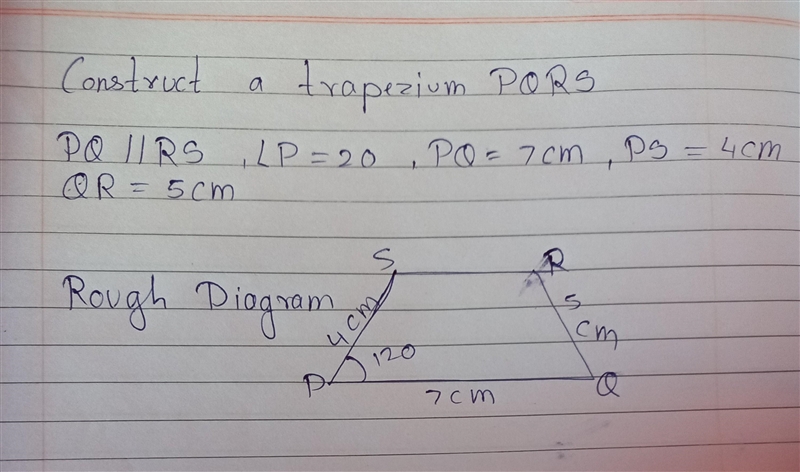 Construct a trapezium PQRS
PQ || RS , ∠P = 20 , PQ = 7cm , PS = 4cm
QR = 5cm
S R
Rough Diagram 4cm 5
cm
120
P Q
7cm